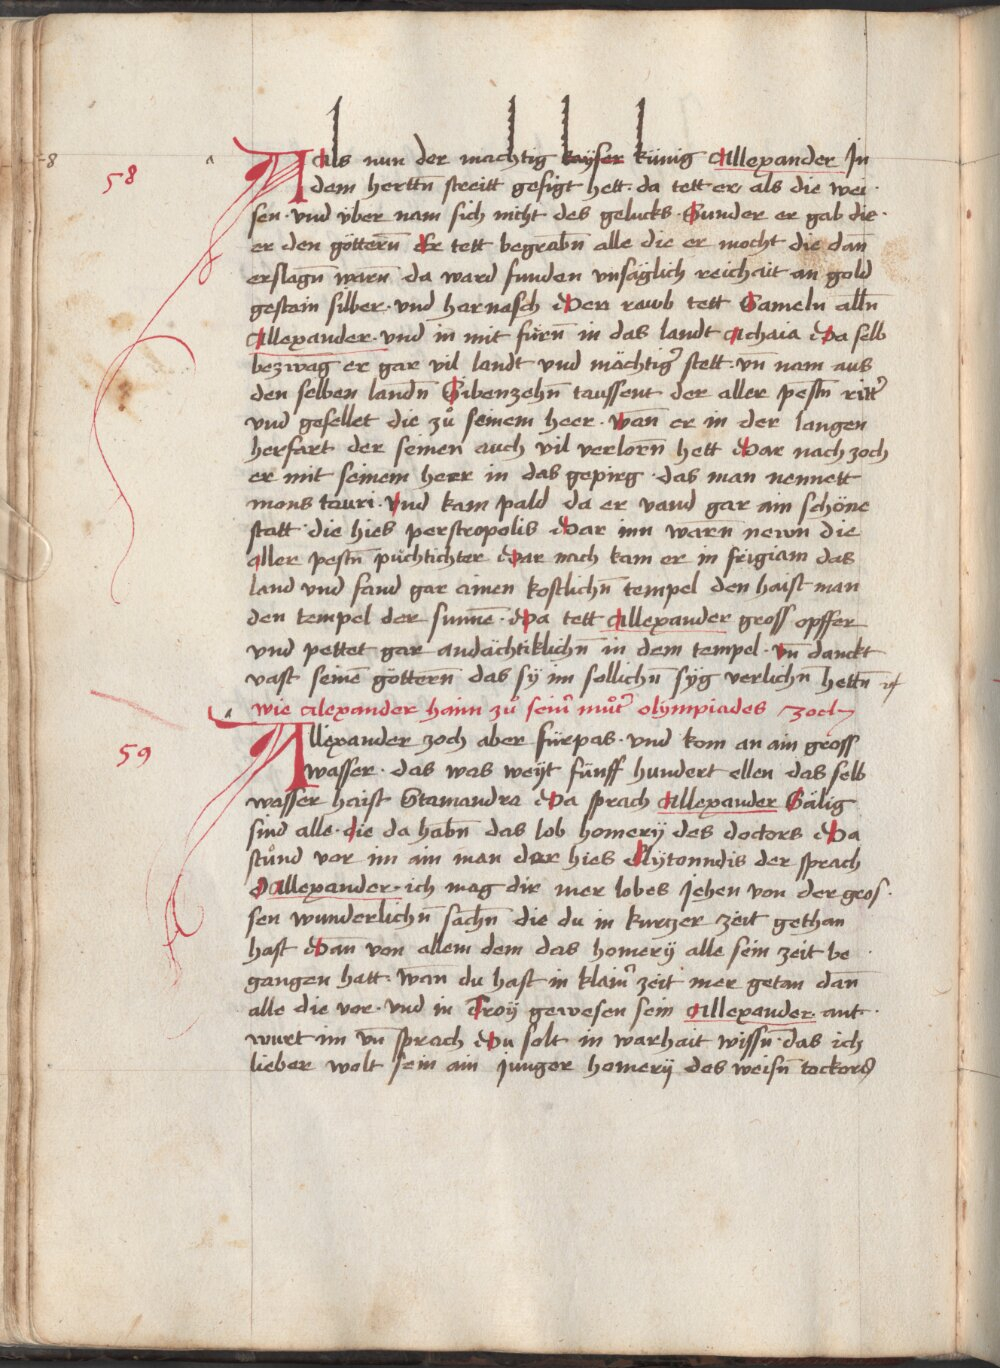 58
Als nun der mächtig kayser künig Allexander Jn
dem herttn̄ streitt gesigt hett · da tett er als die wei ·
sen · vnd über nam sich nicht des gelucks · Sunder er gab die ·
er den göttern̄ Er tett begrabn̄ alle die er mocht die dan̄
erslagn̄ warn̄ da ward funden vnsäglich reichait an gold
gestain silber · vnd harnasch Den rawb tett Sameln alln̄
Allexander · vnd in mit fürn̄ in das landt Achaia Da selb
bezwāg er gar vil landt vnd mächtig̾ stett · vn̄ nam aus
den selben landn̄ Sibenzehn̄ taussent der aller pestn̄ ritt̾
vnd gesellet die zů seinem heer · Wan̄ er in der langen
herfart der seinen auch vil verlorn̄ hett Dar nach zoch
er mit seinem heer in das gepirg · das man nennett
mons tauri · Vnd kam pald da er vand gar ain schöne
statt · die hies perstropolis Dar inn warn̄ newn die
aller pestn̄ puchtichter Dar nach kam er in frigiam das
land vnd fand gar ainen kostlichn̄ tempel den haist man
den tempel der sunnē · Da tett Allexander gross opffer
vnd pettet gar andächtiklichn̄ in dem tempel · vn̄ danckt
vast seinē göttern̄ das sy im sollichn̄ syg verlichn̄ hettn̄
wie Alexander hain zů sein̾ můt̾ olympiades zoch
59
Allexander zoch aber fürpas · vnd kom an ain gross
wasser · das was weyt fünff hundert ellen das selb
wasser haist Stamandra Da sprach Allexander Sälig
sind alle · die da habn̄ das lob homerÿ des doctors Da
stůnd vor im ain man der hies Clÿtonndis der sprach
O Allexander · ich mag dir mer lobes Jehen von der gros ·
sen wunderlichn̄ sachn̄ die du in kurczer zeit gethan
hast Dan̄ von allem dem das homerÿ alle sein zeit be
gangen hatt · wan̄ du hast in klain̾ zeit mer getan dan̄
alle die vor · vnd in Troÿ gewesen sein Allexander · ant ·
wurt im vn̄ sprach Du solt in warhait wissn̄ · das ich
lieber wolt sein ain junger homerÿ des weisn̄ tockors